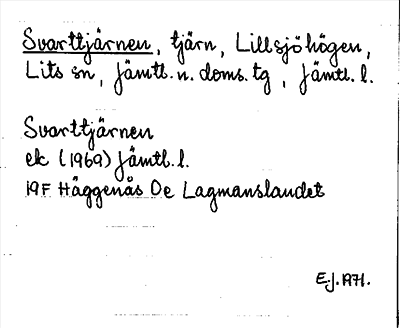 Svarttjärnen, tjärn, Lillsjöhögen,
Lits sn, Jämtl. n. doms. tg, Jämtl. l.
Svarttjärnen
ek (1969) Jämtl. l.
19F Häggenås 0e Lagmanslandet
E.J. 1971.